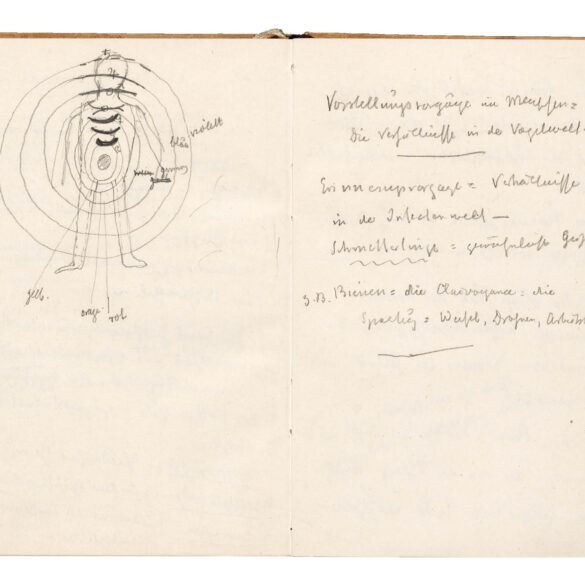 blau violett
grün
gelb.
orange
rot
Vorstellungsvorgänge im Menschen =
Die Verhältnisse in der Vogelwelt
Erinnerungsvorgänge = Verhältnisse
in der Insectenwelt —
Schmetterlinge =
z. B. Bienen = die Clairvoyance: die
= Weisel, Drohnen,